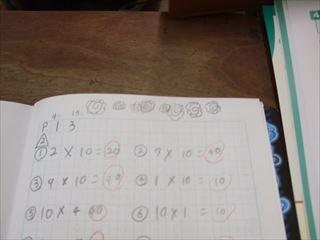 P. 13
2
① 2 × 10 = 20 ② 7 × 10 =
③ 9 × 10 = 90 ④ 1 × 10 = 10
⑤ 10 × 4 ⑥ 10 × 1 = 10